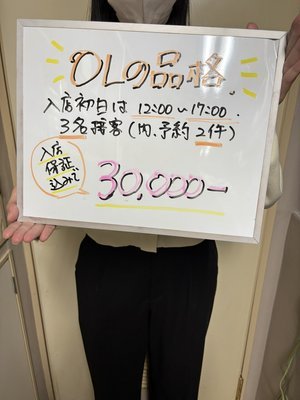 OLの品格
入店初日は 12:00〜17:00.
3名接客(内、予約2件)
入店
保証
込みで
30,000ー